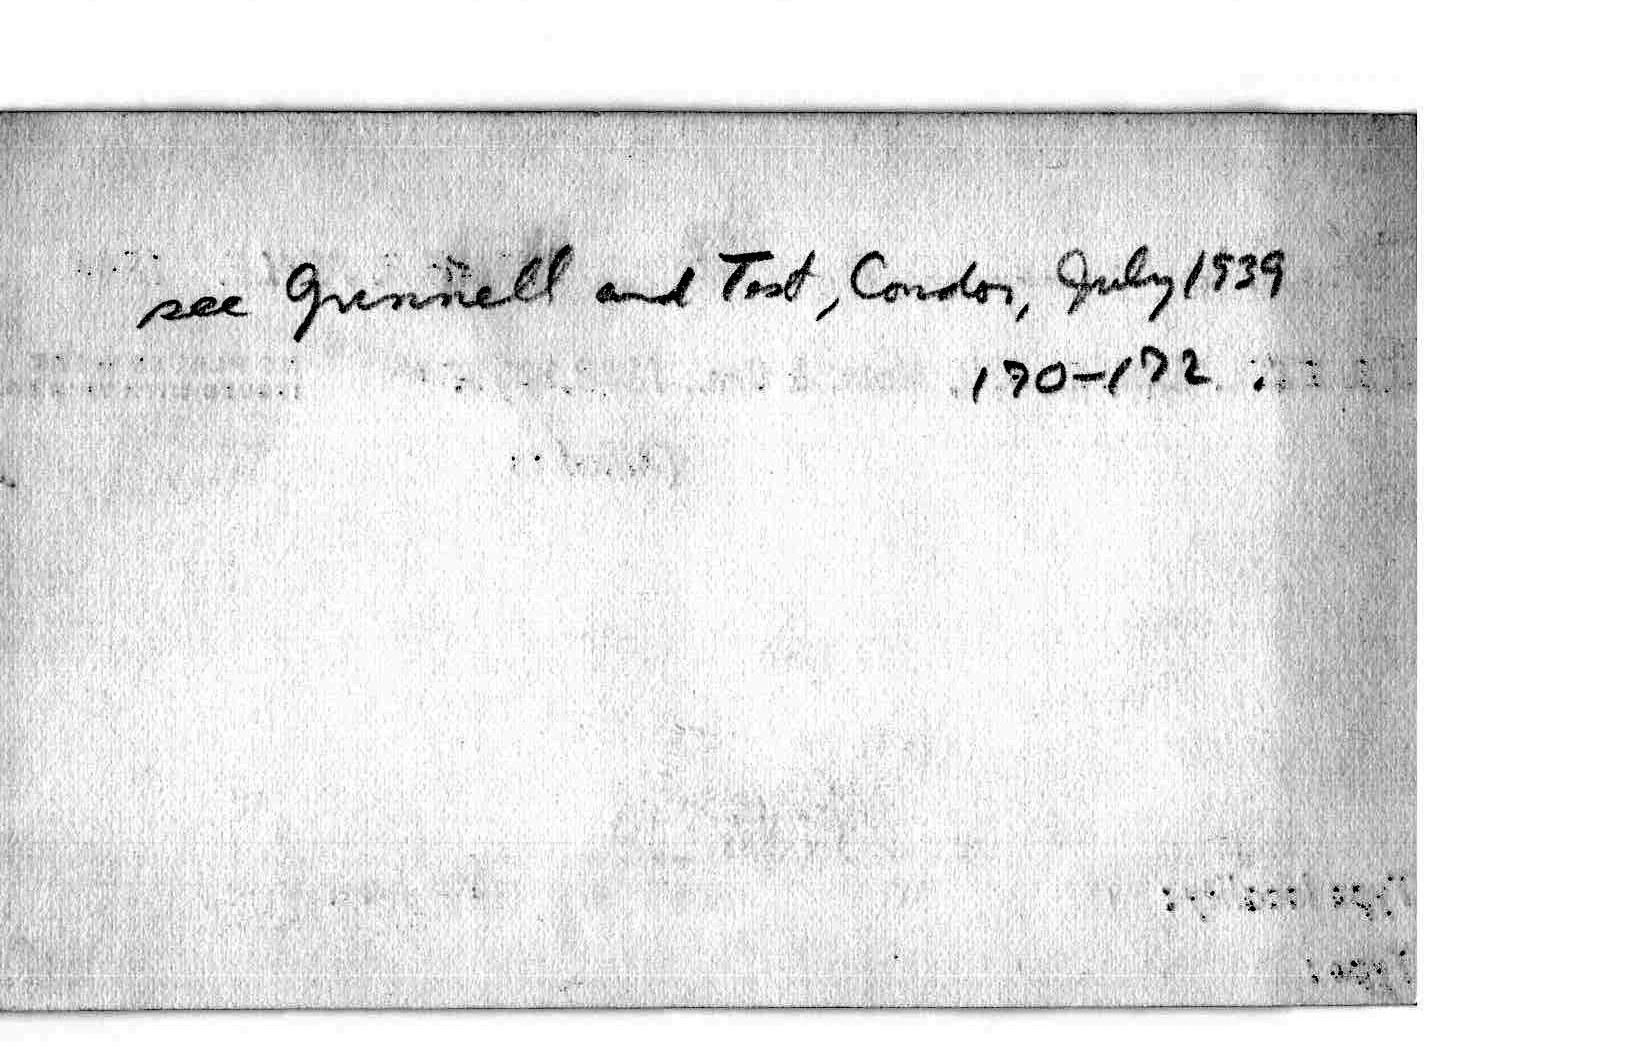 see Grinnell and Test, Condor, July 1939
170-172.